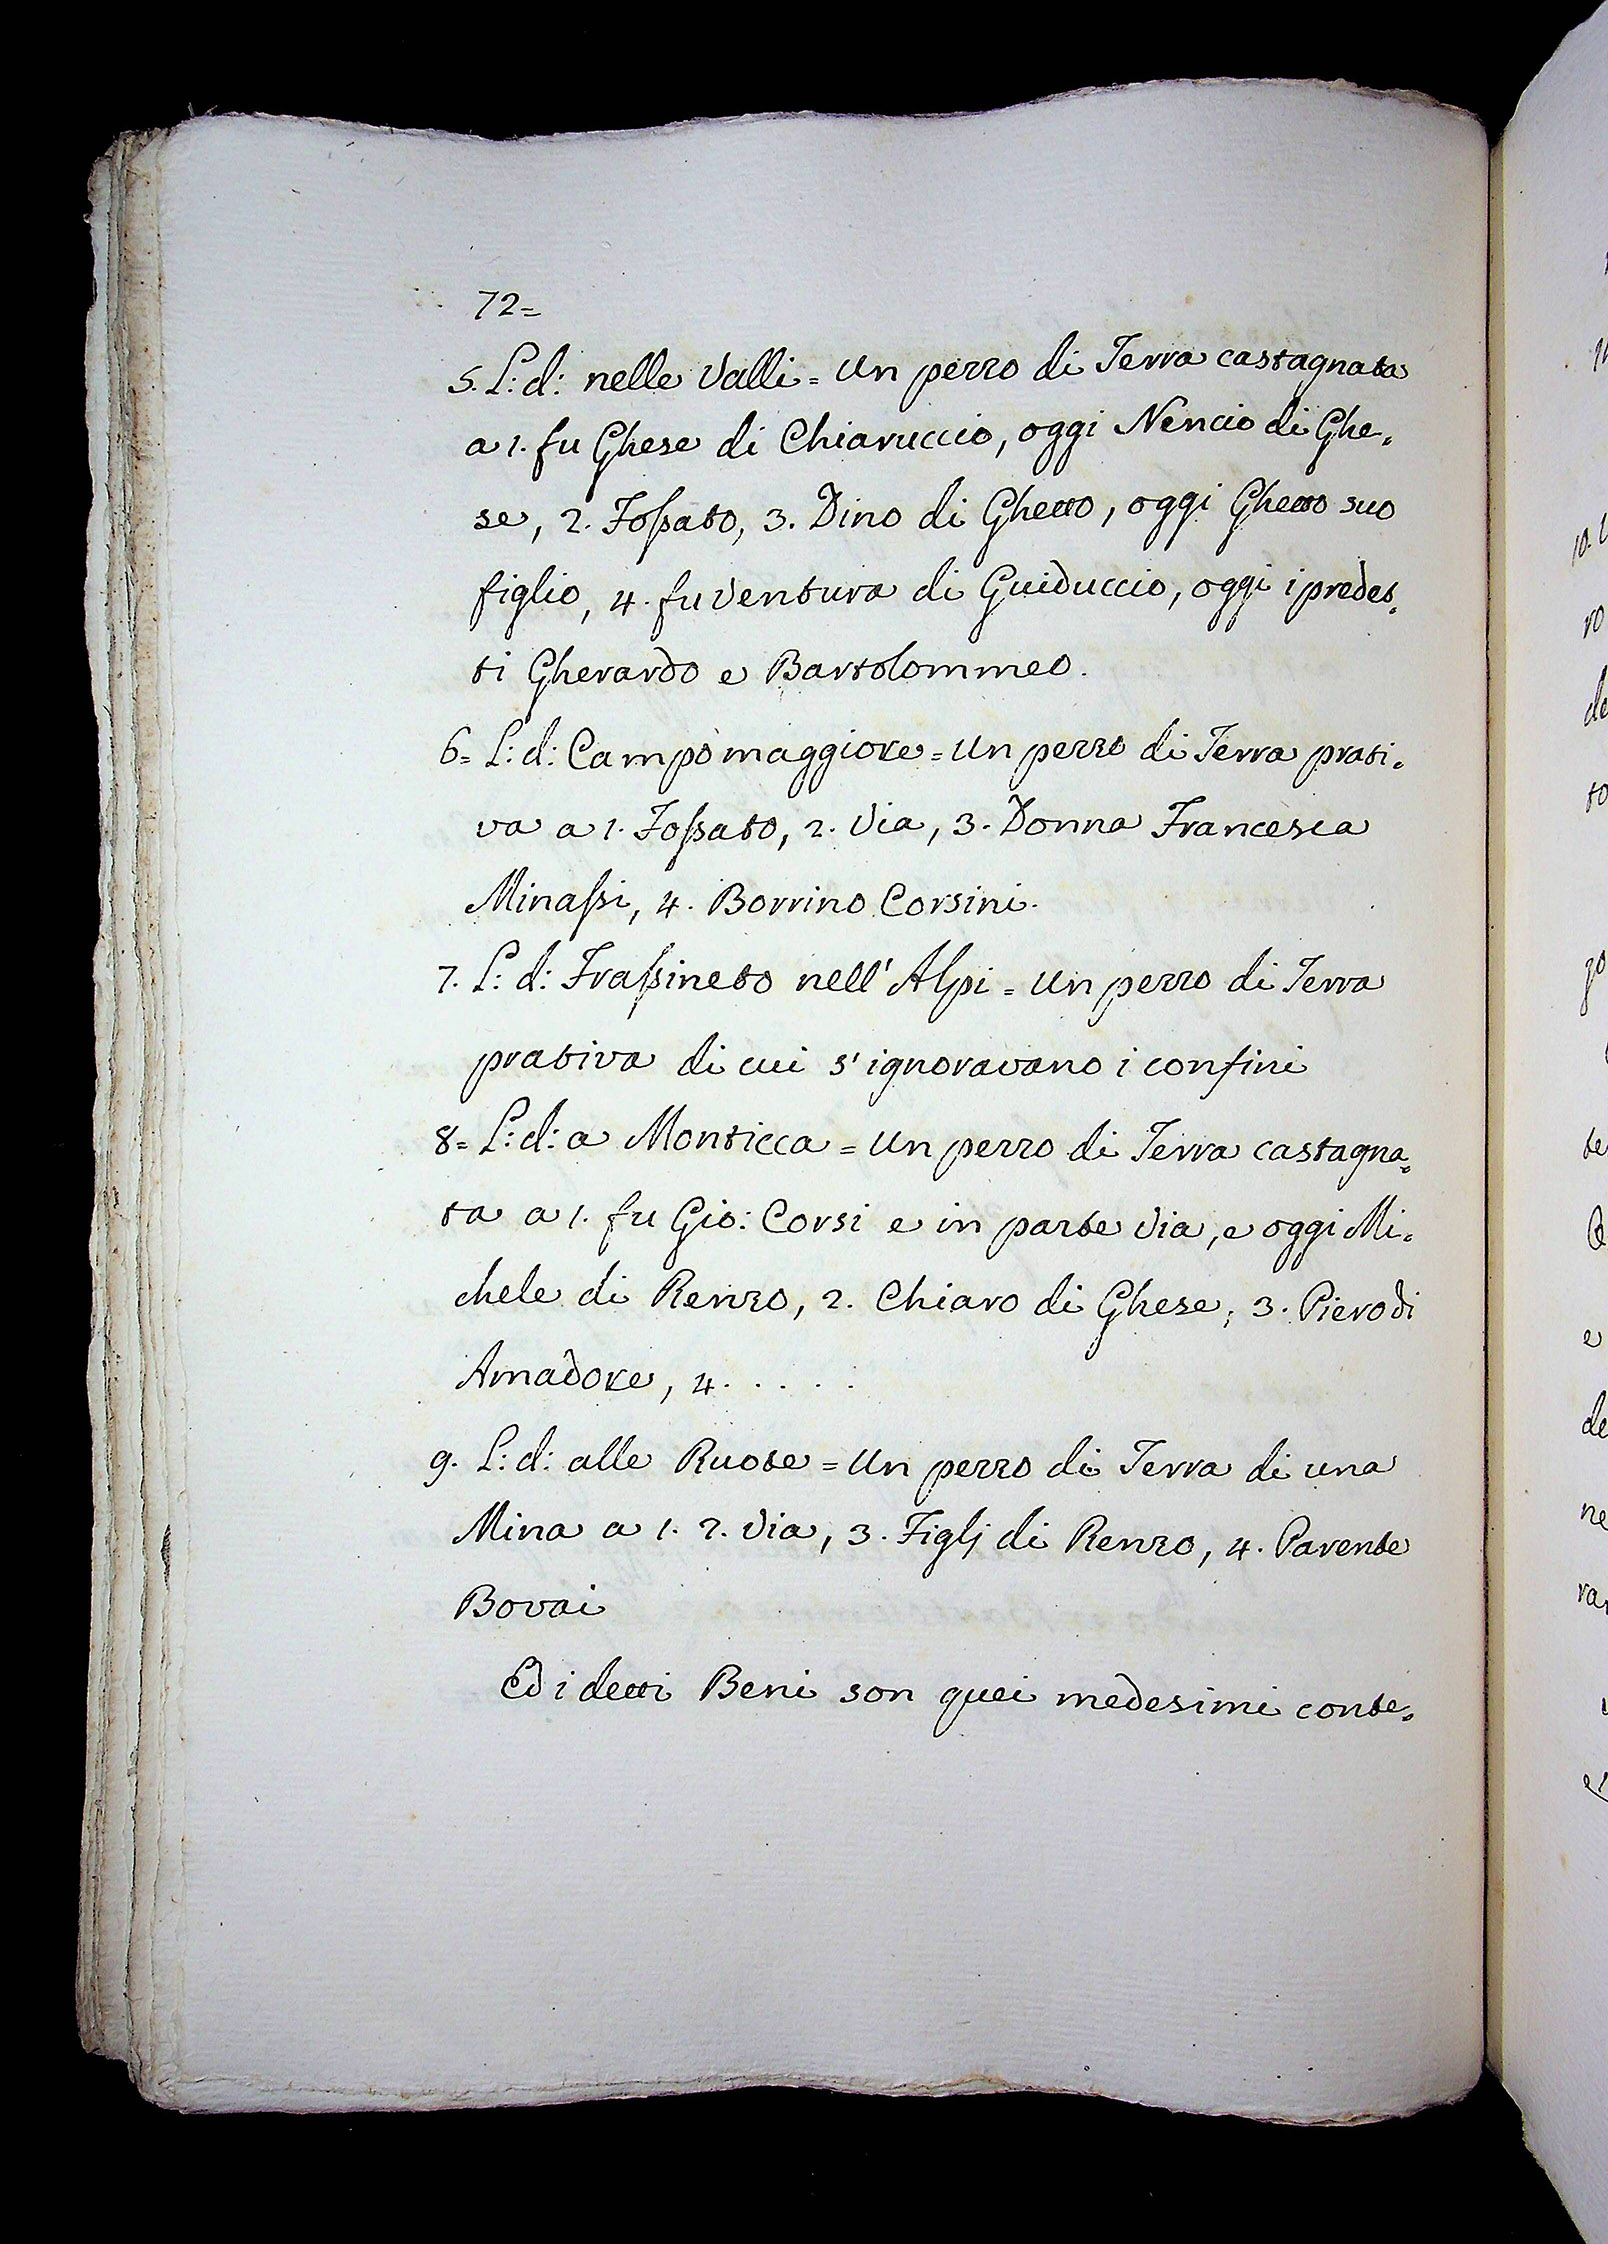 72=
5. L: d: nelle Valli = Un pezzo di Terra castagnata
a 1. fu Ghese di Chiaruccio, oggi Nencio di Ghe=
se, 2. Fossato, 3. Dino di Ghetto, oggi Ghetto suo
figlio, 4. fu Ventura di Guiduccio, oggi i predet=
ti Gherardo e Bartolommeo.
6= L: d: Campomaggiore = Un pezzo di Terra prati=
va a 1. Fossato, 2. Via, 3. Donna Francesca
Minassi, 4. Borrino Corsini.
7. L: d: Frassineto nell' Alpi = Un pezzo di Terra
prativa di cui s' ignoravano i confini
8= L: d: a Monticca = Un pezzo di Terra castagna=
ta a 1. fu Gio: Corsi e in parte Via, e oggi Mi=
chele di Renzo, 2. Chiaro di Ghese, 3. Piero di
Amadore, 4. . . . . .
9. L: d: alle Ruote = Un pezzo di Terra di una
Mina a 1. 2. Via, 3. Figlj di Renzo, 4. Parente
Bovai
Ed i detti Beni son quei medesimi conte=